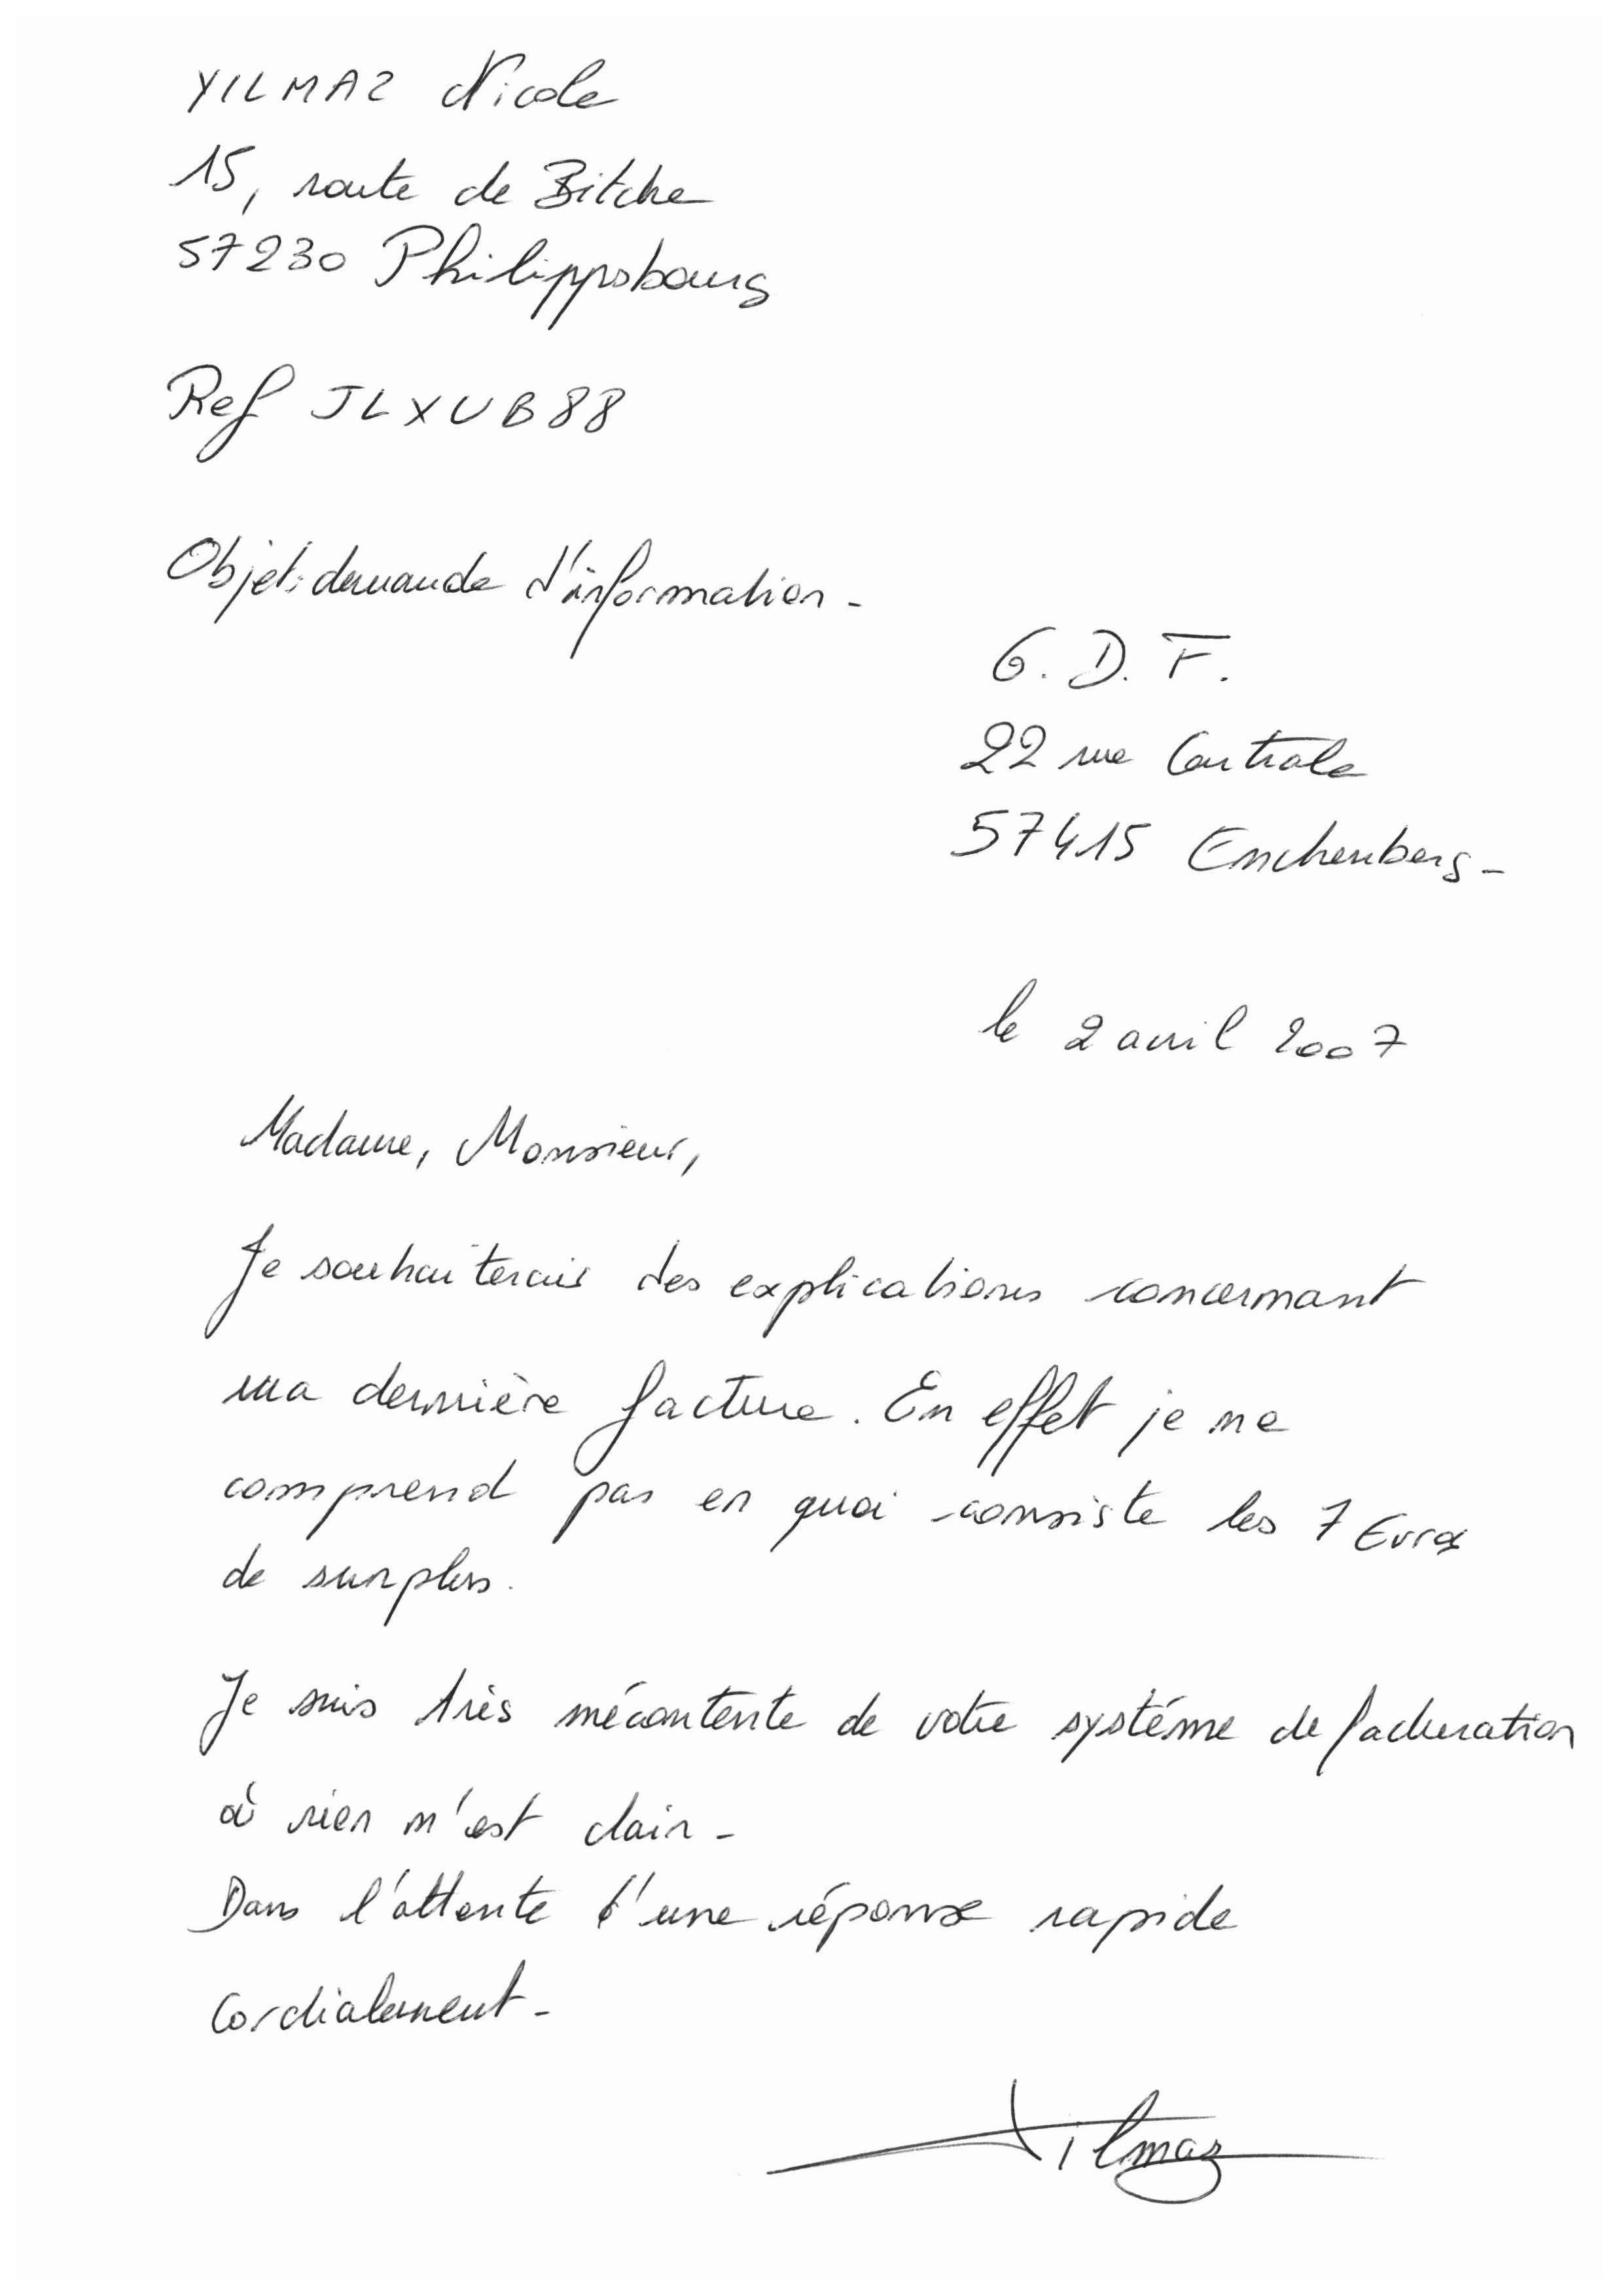 YILMAZ Nicole
15, route de Bitche
57230 Philippsbourg
Ref JLXUB88
Objet: demande d'information -
G. D. F.
22 rue Centrale
57415 Enchenberg -
le 2 avril 2007
Madame, Monsieur,
Je souhaiterais des explications concernant
ma dernière facture. En effet je ne
comprend pas en quoi consiste les 7 Euros
de surplus.
Je suis très mécontente de votre systéme de facturation
où rien n'est clair -
Dans l'attente d'une réponse rapide
Cordialement -
Yilmaz